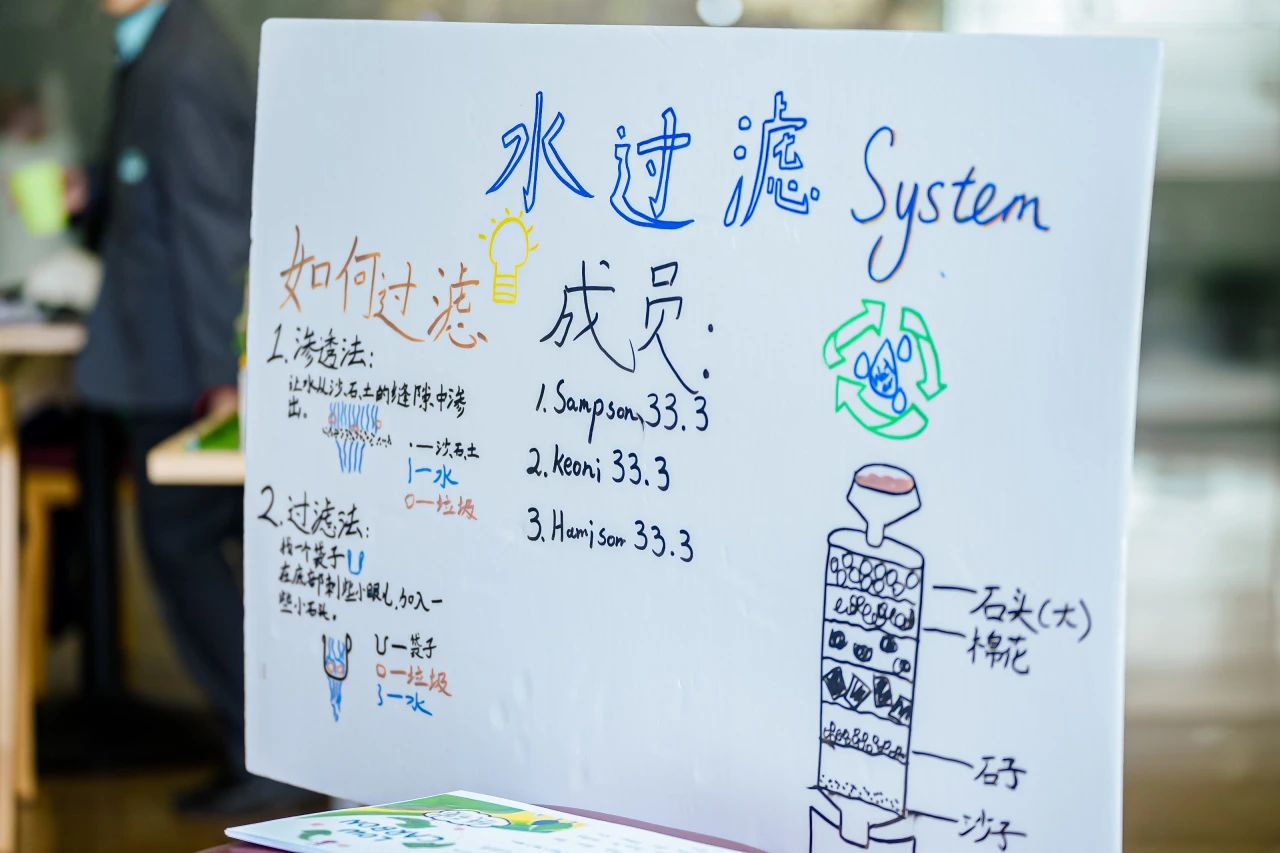 水过滤 System
如何过滤
1. 渗透法:
让水从沙石土的缝隙中渗
出。
·一沙石土
一水
0一垃圾
2. 过滤法:
找一个袋子U
在底部刺些小眼儿,加入一
些小石头。
U一袋子
0一垃圾
3一水
成员:
1. Sampson 33.3
2. Keoni 33.3
3. Hamison 33.3
石头(大)
棉花
石子
沙子